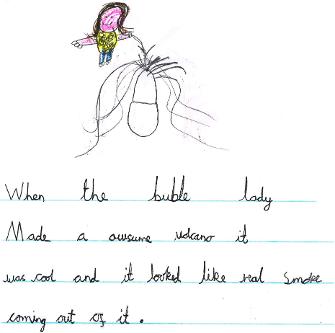 When the buble lady
Made a awsume volcano it
was cool and it looked like real smoke
coming out of it.